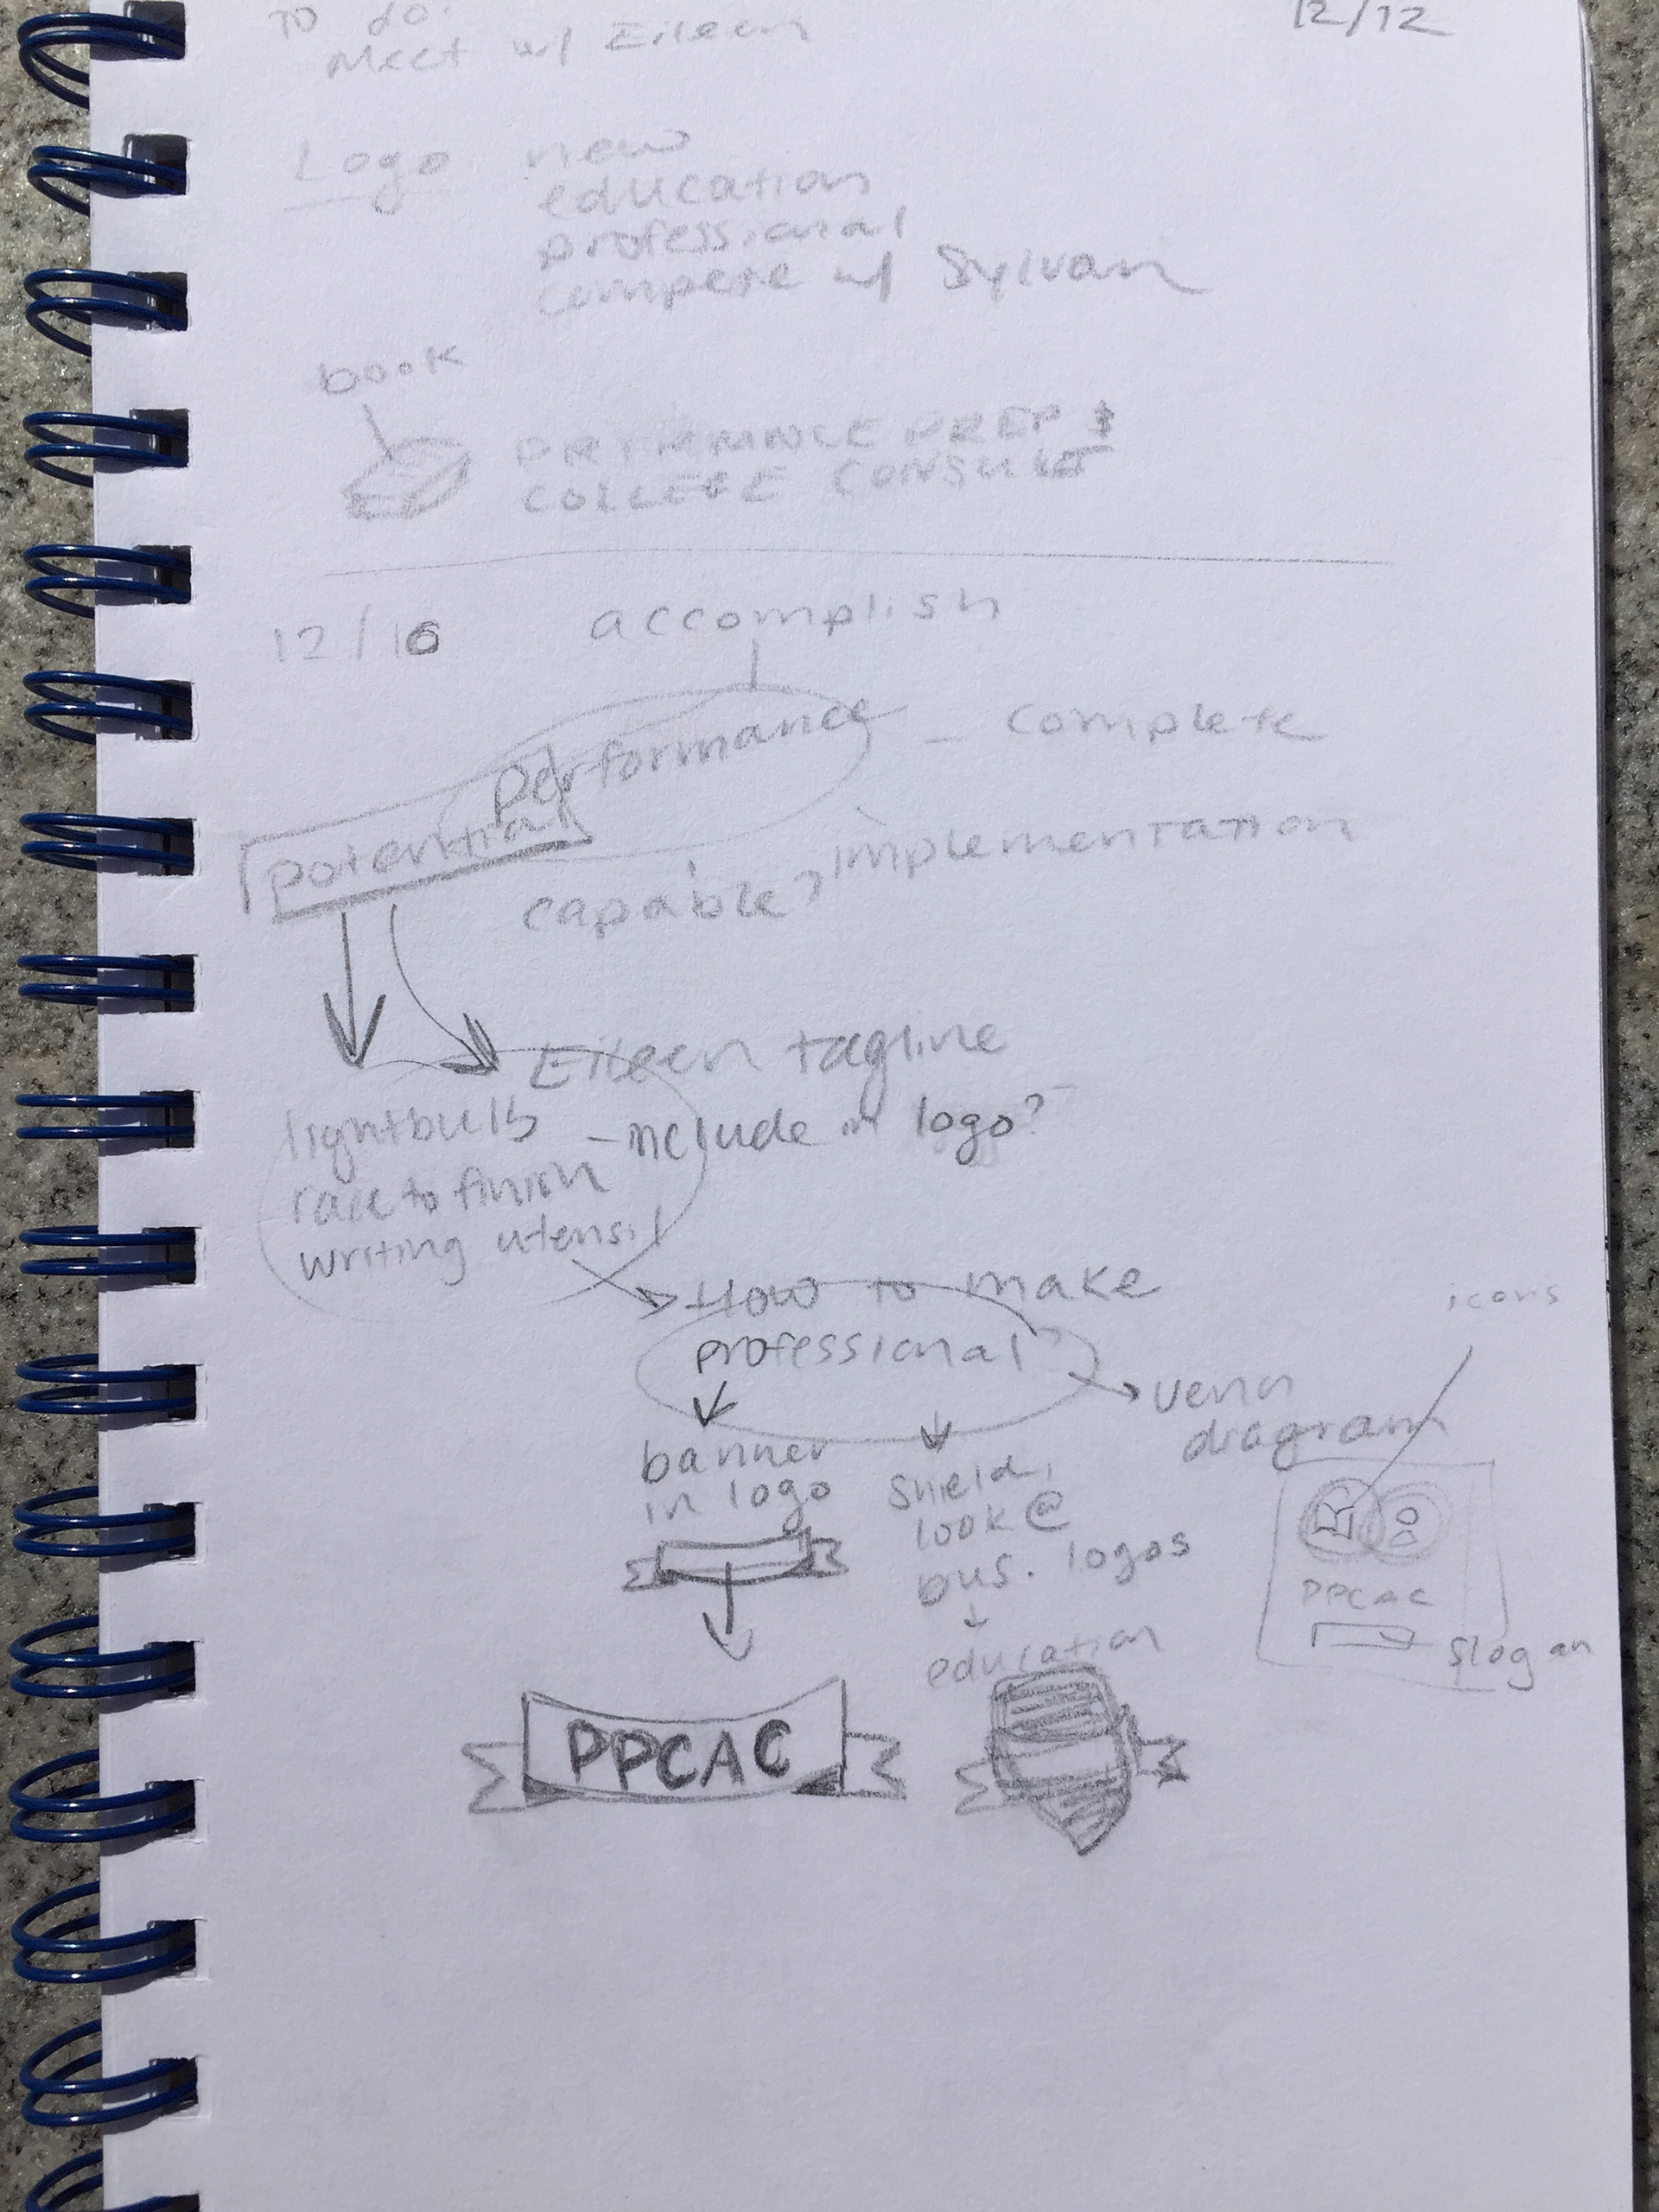 to do:
12/12
Meet w/ Eileen
Logo new
education
professional
compete w/ Sylvan
book
PREP &
COLLEGE CONSULT
12/16
accomplish
performance
- complete
potential
implementation
capable?
Eileen tagline
lightbulb
- include in logo?
race to finish
writing utensil
How to make
professional?
icons
venn
diagram
banner
in logo
shield,
look @
bus. logos
education
PPCAC
slogan
PPCAC